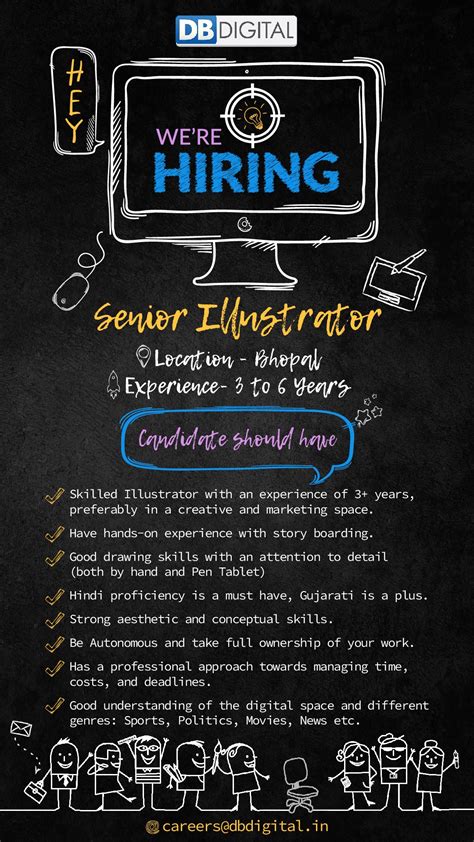 DB DIGITAL
HEY
WE'RE
HIRING
Senior Illustrator
Location - Bhopal
Experience- 3 to 6 Years
Candidate should have
Skilled Illustrator with an experience of 3+ years,
preferably in a creative and marketing space.
Have hands-on experience with story boarding.
Good drawing skills with an attention to detail
(both by hand and Pen Tablet)
Hindi proficiency is a must have, Gujarati is a plus.
Strong aesthetic and conceptual skills.
Be Autonomous and take full ownership of your work.
Has a professional approach towards managing time,
costs, and deadlines.
Good understanding of the digital space and different
genres: Sports, Politics, Movies, News etc.
@careers@dbdigital.in